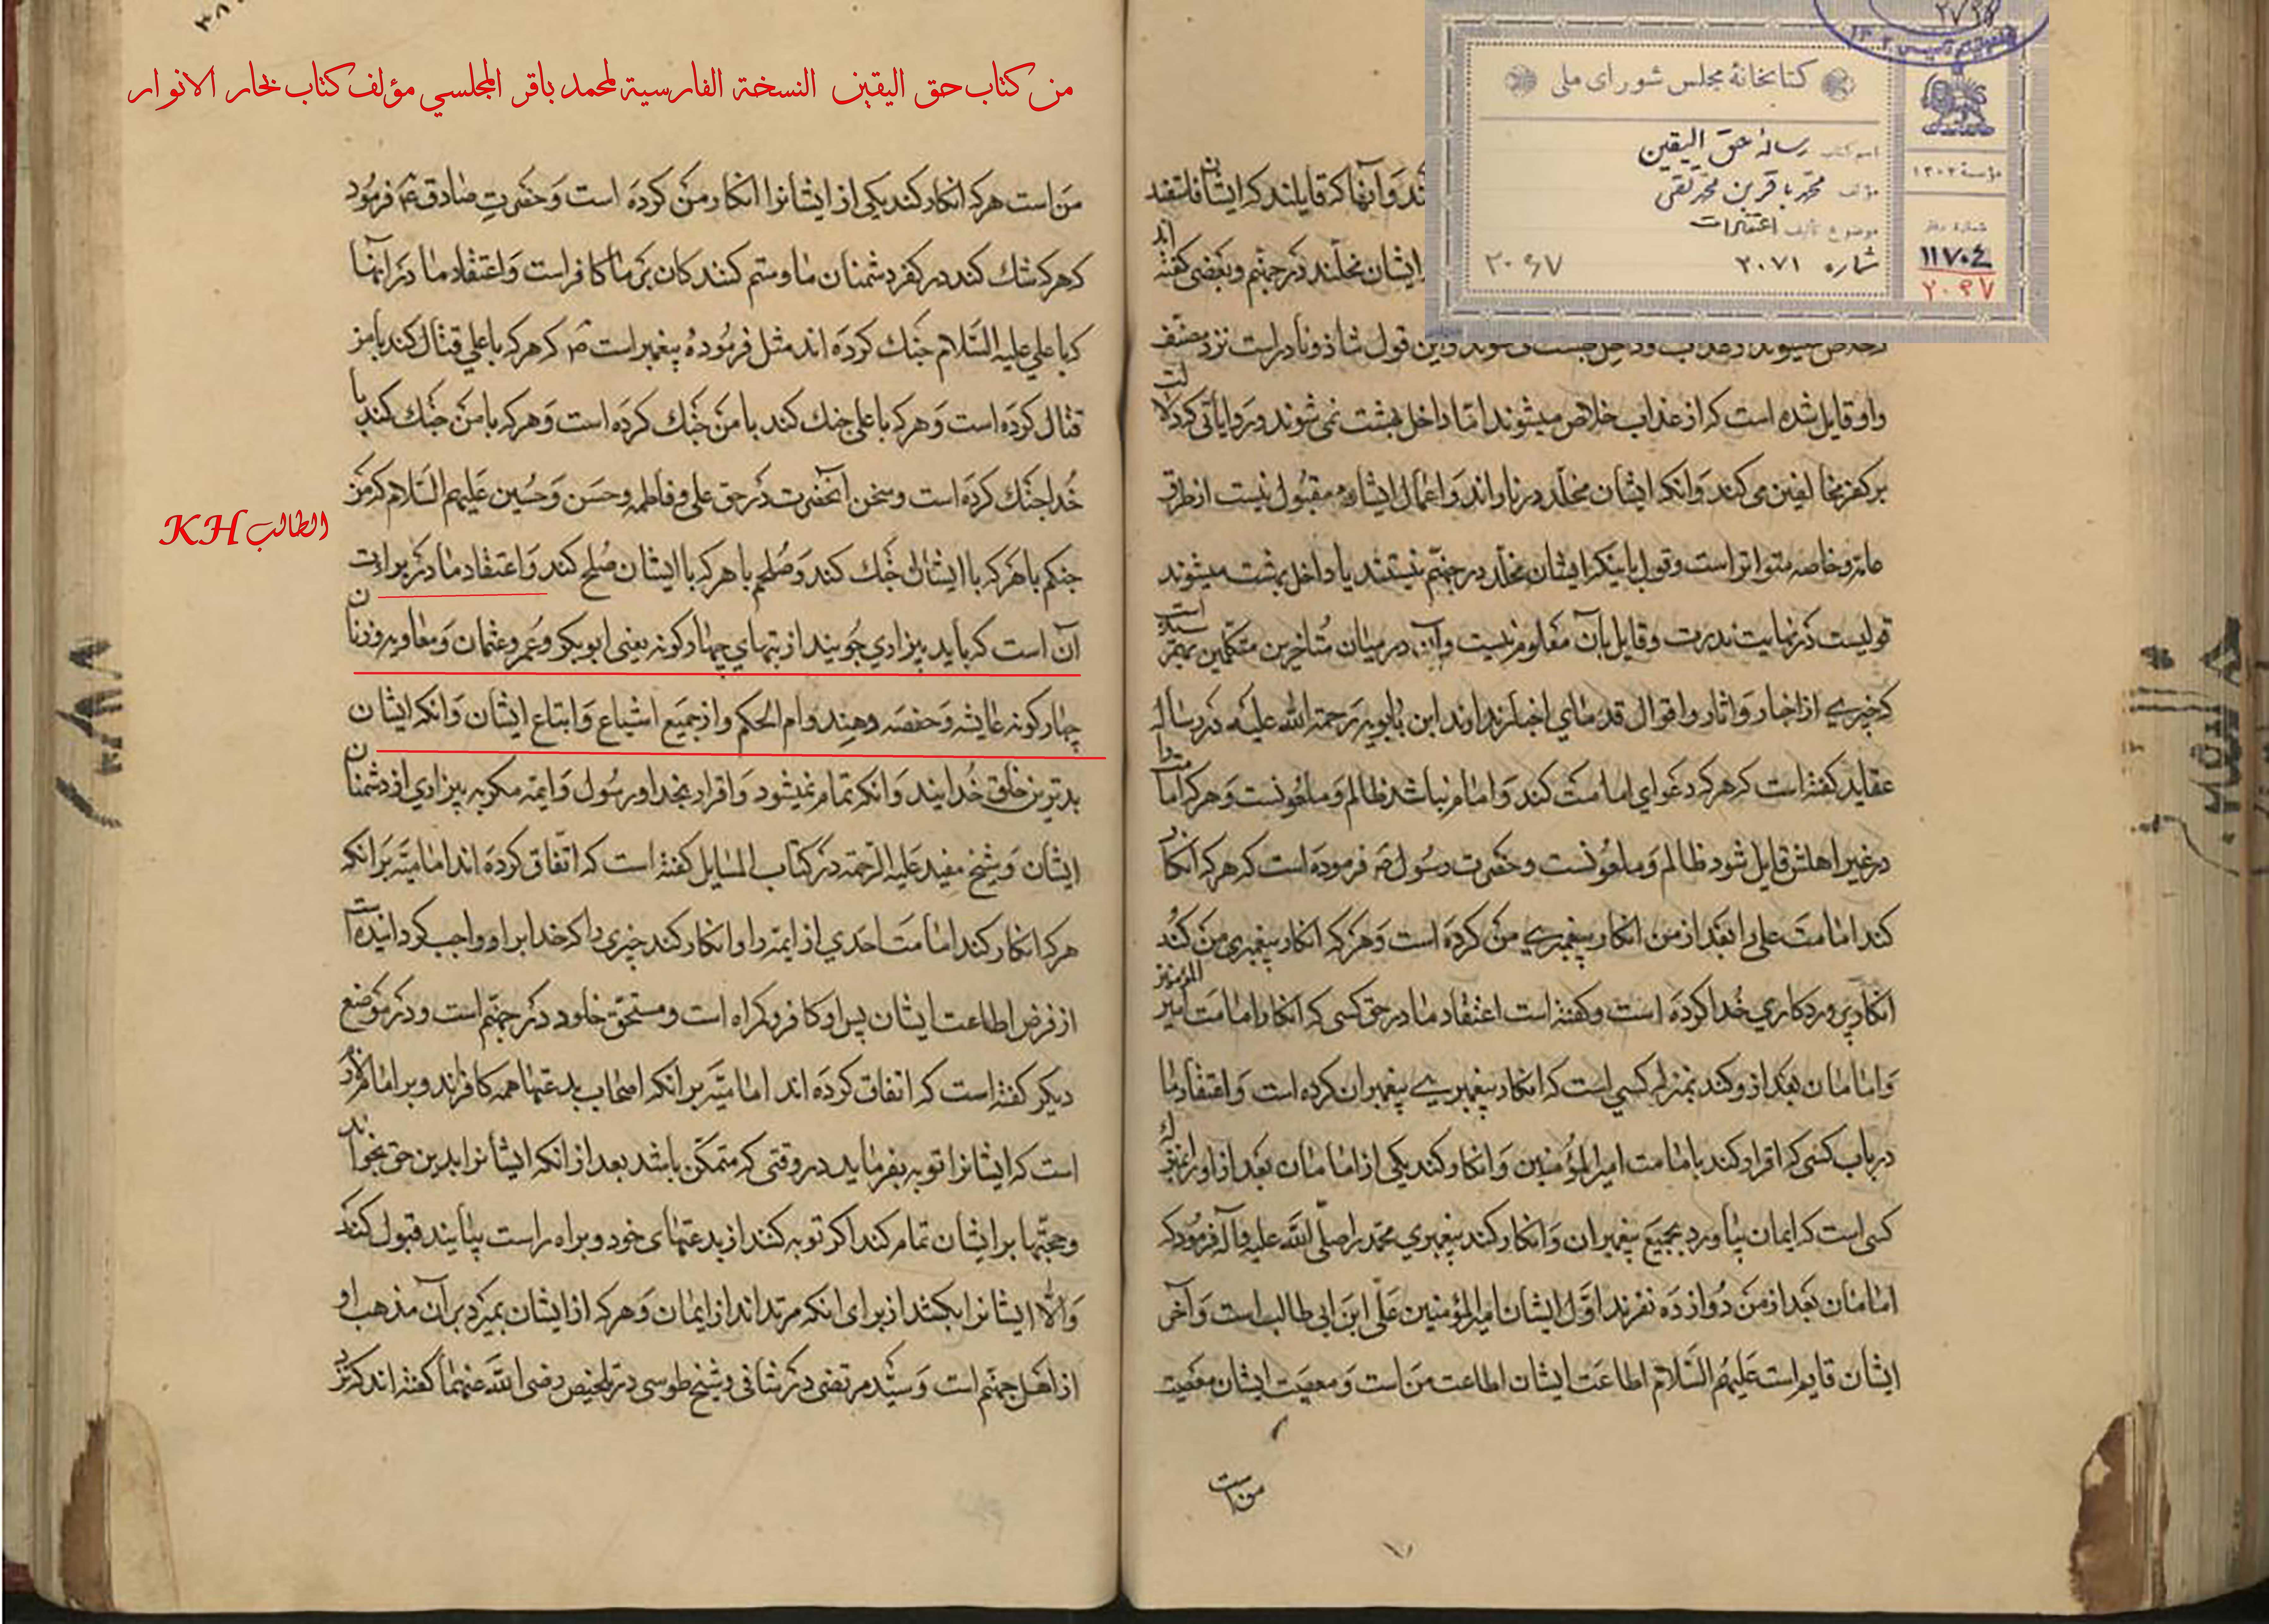 من كتاب حق اليقين النسخة الفارسية لمحمد باقر المجلسي مؤلف كتاب بحار الانوار
الطالب KH
کتابخانهٔ مجلس شورای ملی
اسم کتاب رساله حق الیقین
مؤلف محمد باقر بن محمد تقی
موضوع تألیف اعتقادات
شماره ۲۰۷۱ ۲۰۶۷
مؤسسهٔ ۱۳۰۲
شمارهٔ دفتر
۱۱۷۰٤
۲۰۹۷
کند وآنها که قایلند که ایشان فاسقند
ایشان مخلّدند در جهنم وبعضی کفته اند
واو قایل شده است که از عذاب خلاص میشوند امّا داخل بهشت نمی شوند وروایاتی که دلالت
بر کفر مخالفین می کند وانکه ایشان مخلّد در نار اند واعمال ایشان مقبول نیست از طرق
عامه وخاصه متواتر است وقول باینکه ایشان مخلّد در جهنّم نیستند یا داخل بهشت میشوند
قولیست در نهایت ندرت وقایل بآن معلوم نیست وآن در میان متأخرین متکلمین
که خبری از اخبار واثار واقوال قدمای اخبار ندارند ابن بابویه رحمة الله علیه در رساله
عقاید کفته است که هر که دعوای امامت کند وامام نباشد ظالم وملعونست وهر که امامت را
در غیر اهلش قایل شود ظالم وملعونست وحضرت رسول ص فرموده است که هر که انکار
کند امامت علی را بعد از من انکار پیغمبری من کرده است وهر که انکار پیغمبری من کند
انکار پروردکاری خدا کرده است وکفته است اعتقاد ما در حق کسی که انکار امامت امیر المؤمنین
وامامان بعد از او کند بمنزلهٔ کسی است که انکار پیغمبری پیغمبران کرده است واعتقاد ما
در باب کسی که اقرار کند بامامت امیر المؤمنین وانکار کند یکی از امامان بعد از او را
کسی است که ایمان بیاورد بجمیع پیغمبران وانکار کند پیغمبری محمد را صلّی الله علیه وآله فرمود که
امامان بعد از من دوازده نفرند اوّل ایشان امیر المؤمنین علی ابن ابی طالب است وآخر
ایشان قایم است علیهم السّلام اطاعت ایشان اطاعت من است ومعصیت ایشان معصیت
من است
من است هر که انکار کند یکی از ایشانرا انکار من کرده است وحضرت صادق ع فرمود
که هر که شك کند در کفر دشمنان ما وستم کنند کان بر ما کافر است واعتقاد ما در آنها
که با علی علیه السّلام جنك کرده اند مثل فرمودهٔ پیغمبر است ص که هر که با علی قتال کند با من
قتال کرده است وهر که با علی جنك کند با من جنك کرده است وهر که با من جنك کند با
خدا جنك کرده است وسخن آنحضرت در حق علی وفاطمه وحسن وحسین علیهم السّلام که من
جنکم با هر که با ایشان جنك کند وصلحم با هر که با ایشان صلح کند واعتقاد ما در براءت
آن است که باید بیزاری جویند از بتهای چهار کونه یعنی ابو بکر وعمر وعثمان ومعاویه وزنان
چهار کونه عایشه وحفصه وهند وام الحکم واز جمیع اشیاع واتباع ایشان وانکه ایشان
بدترین خلق خدایند وانکه تمام نمیشود اقرار بخدا ورسول وایمّه مکر به بیزاری از دشمنان
ایشان وشیخ مفید علیه الرّحمة در کتاب المسایل کفته است که اتّفاق کرده اند امامیّه بر انکه
هر که انکار کند امامت احدی از ایمّه را وانکار کند چیزی را که خدا بر او واجب کردانیده است
از فرض اطاعت ایشان پس او کافر وکمراه است ومستحق خلود در جهنّم است ودر موضع
دیکر کفته است که اتفاق کرده اند امامیّه بر انکه اصحاب بدعتها همه کافرند وبر امام لازم
است که ایشانرا توبه بفرماید در وقتی که متمکّن باشد بعد از انکه ایشانرا بدین حق بخواند
وحجّتها بر ایشان تمام کند اکر توبه کنند از بدعتهای خود وبراه راست بیایند قبول کند
والّا ایشانرا بکشد از برای انکه مرتد اند از ایمان وهر که از ایشان بمیرد بر آن مذهب او
از اهل جهنّم است وسیّد مرتضی در شافی وشیخ طوسی در تلخیص رضی الله عنهما کفته اند که نزد